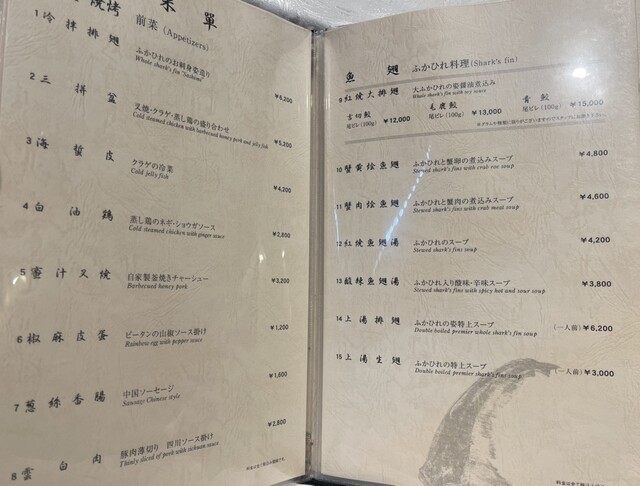 燒烤 菜單
前菜 (Appetizers)
1 冷拌排翅
ふかひれのお刺身姿造り
Whole shark's fin "Sashimi"
¥6,200
2 三拼盆
叉焼・クラゲ・蒸し鶏の盛り合わせ
Cold steamed chicken with barbecued honey pork and jelly fish
¥5,200
3 海蜇皮
クラゲの冷菜
Cold jelly fish
¥4,200
4 白油鶏
蒸し鶏のネギ・ショウガソース
Cold steamed chicken with ginger sauce
¥2,800
5 蜜汁叉焼
自家製釜焼きチャーシュー
Barbecued honey pork
¥3,200
6 椒麻皮蛋
ピータンの山椒ソース掛け
Rainbow egg with pepper sauce
¥1,200
7 葱絲香腸
中国ソーセージ
Sausage Chinese style
¥1,600
8 雲白肉
豚肉薄切り 四川ソース掛け
Thinly sliced of pork with sichuan sauce
¥2,800
魚翅 ふかひれ料理 (Shark's fin)
9 紅焼大排翅
大ふかひれの姿醤油煮込み
Whole shark's fin with soy sauce
吉切鮫
尾ビレ(100g) ¥12,000
毛鹿鮫
尾ビレ(100g) ¥13,000
青鮫
尾ビレ(100g) ¥15,000
10 蟹黄烩魚翅
ふかひれと蟹卵の煮込みスープ
Stewed shark's fin with crab roe soup
¥4,800
11 蟹肉烩魚翅
ふかひれと蟹肉の煮込みスープ
Stewed shark's fin with crab meat soup
¥4,600
12 紅焼魚翅湯
ふかひれのスープ
Stewed shark's fins soup
¥4,200
13 酸辣魚翅湯
ふかひれ入り酸味・辛味スープ
Stewed shark's fins with spicy hot and sour soup
¥3,800
14 上湯排翅
ふかひれの姿特上スープ
Double boiled premier whole shark's fins soup
(一人前) ¥6,200
15 上湯生翅
ふかひれの特上スープ
Double boiled premier shark's fins soup
(一人前) ¥3,000